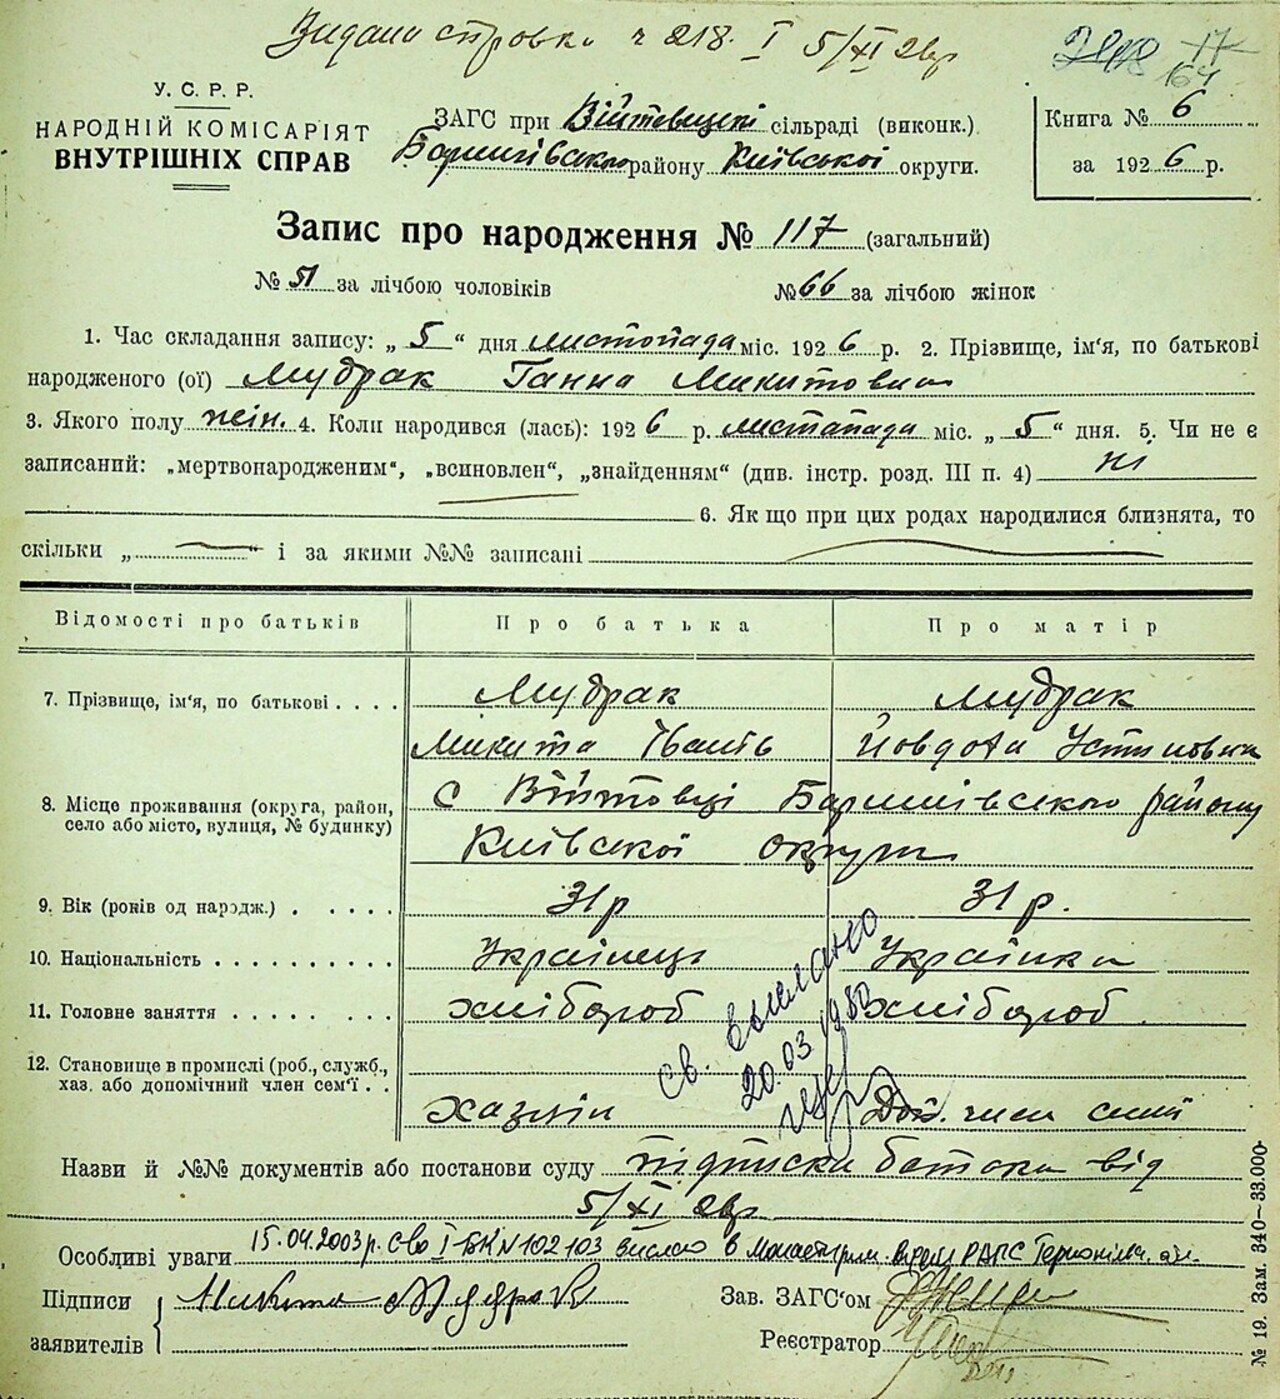 Видана справка ч 218. I 5/XI 26р
У. С. Р. Р.
НАРОДНІЙ КОМІСАРІЯТ
ВНУТРІШНІХ СПРАВ
ЗАГС при Війтовецькі сільраді (виконк.)
Баришівського району Київської округи.
Книга № 6
за 1926 р.
Запис про народження № 117 (загальний)
№ 51 за лічбою чоловіків № 66 за лічбою жінок
1. Час складання запису: „ 5 “ дня листопада міс. 1926 р. 2. Прізвище, ім'я, по батькові
народженого (ої) Мудрак Ганна Микитовна
3. Якого полу жін. 4. Коли народився (лась): 1926 р. листапада міс. „ 5 “ дня. 5. Чи не є
записаний: „мертвонародженим“, „всиновлен“, „знайденням“ (див. інстр. розд. III п. 4) ні
6. Як що при цих родах народилися близнята, то
скільки „ “ і за якими №№ записані
Відомості про батьків Про батька Про матір
7. Прізвище, ім'я, по батькові . . . . Мудрак Мудрак
Микита Іванів Йовдоха Устиновна
8. Місце проживання (округа, район, село або місто, вулиця, № будинку) с Війтовці Баришівського району
Київської округи
9. Вік (років од народж.) . . . . . 31 р 31 р.
10. Національність . . . . . . . . . . Українець Українка
11. Головне заняття . . . . . . . . . хлібороб хлібороб
12. Становище в промислі (роб., служб., хаз. або допомічний член сем'ї . .
хазяїн Доп. член сімї
св. выслано
20.03 1980
Назви й №№ документів або постанови суду підписки батька від
5/XI 26р
Особливі уваги 15.04.2003р. св-во І-БК N 102103 вислано в Монастирис. РАГС Тернопільс.
Підписи заявителів Микита Мудрак
Зав. ЗАГС'ом
Реєстратор
№ 19. Зам. 340—33.000